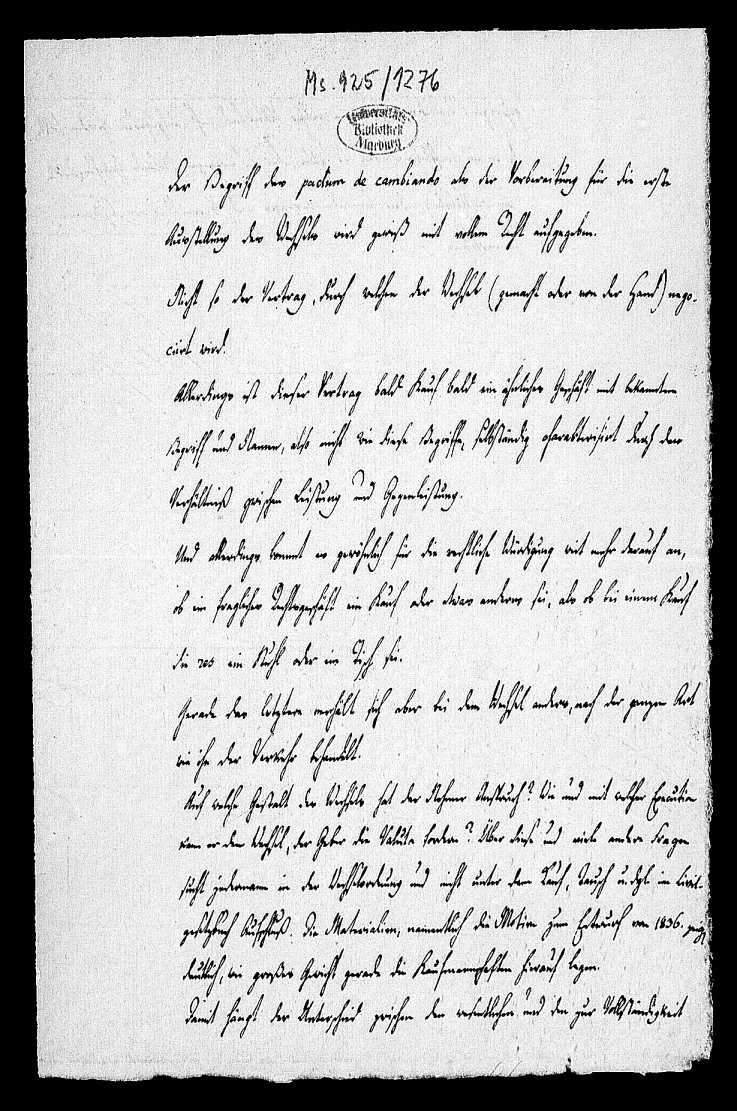 Ms. 925/1276
Universitäts-
Bibliothek
Marburg
Der Begriff des pactum de cambiando als der Vorbereitung für die erste
Ausstellung des Wechsels wird gewiß mit vollem Recht aufgegeben.
Nicht so der Vertrag, durch welchen der Wechsel (gemacht oder von der Hand) nego-
ciirt wird.
Allerdings ist dieser Vertrag bald Kauf bald ein ähnliches Geschäft mit bekanntem
Begriff und Namen, also nicht wie diese Begriffe, selbständig charakterisirt durch das
Verhältniß zwischen Leistung und Gegenleistung.
Und allerdings kommt es gewöhnlich für die rechtliche Würdigung weit mehr darauf an,
ob ein fragliches Rechtsgeschäft ein Kauf oder etwas anderes sei, als ob bei einem Kauf
die res ein Stuhl oder ein Tisch sei.
Gerade das letztere verhält sich aber bei dem Wechsel anders, nach der ganzen Art
wie ihn der Verkehr behandelt.
Auf welche Gestalt des Wechsels hat der Nehmer Anspruch? Wie und mit welcher Execution
kann er den Wechsel, der Geber die Valuta fordern? Über diese und viele andere Fragen
sucht jedermann in der Wechselordnung und nicht unter dem Kauf, Tausch u. dgl. im Civil-
gesetzbuch Aufschluß. Die Materialien, namentlich die Motive zum Entwurf von 1836. zeigen
deutlich, wie großes Gewicht gerade die Kaufmannschaften hierauf legen.
Damit hängt der Unterschied zwischen den wesentlichen und den zur Vollständigkeit